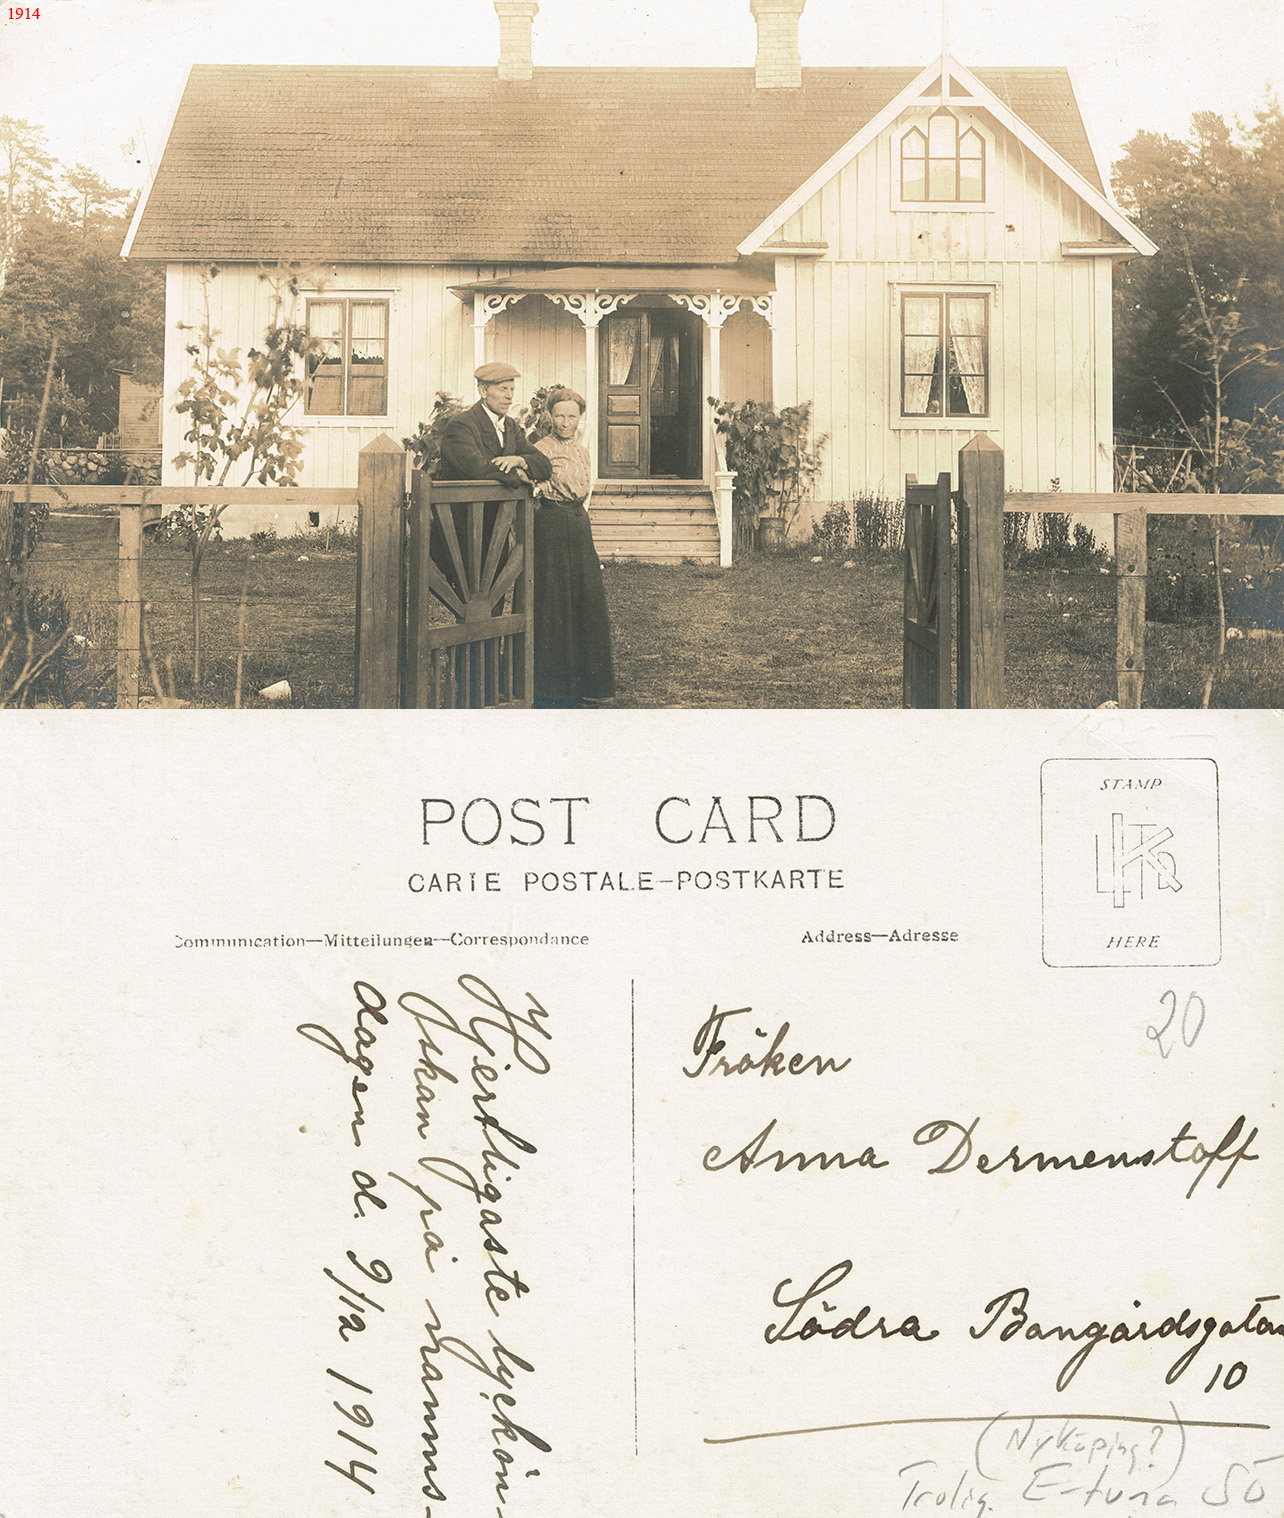 1914
POST CARD
CARTE POSTALE—POSTKARTE
Communication—Mitteilungen—Correspondance
Address—Adresse
STAMP
HERE
20
Hjertligaste lyckön-
skan på namns-
dagen d. 9/12 1914
Fröken
Anna Dermenstoff
Södra Bangårdsgatan
10
(Nyköping?)
Trolig. E-tuna SÖ